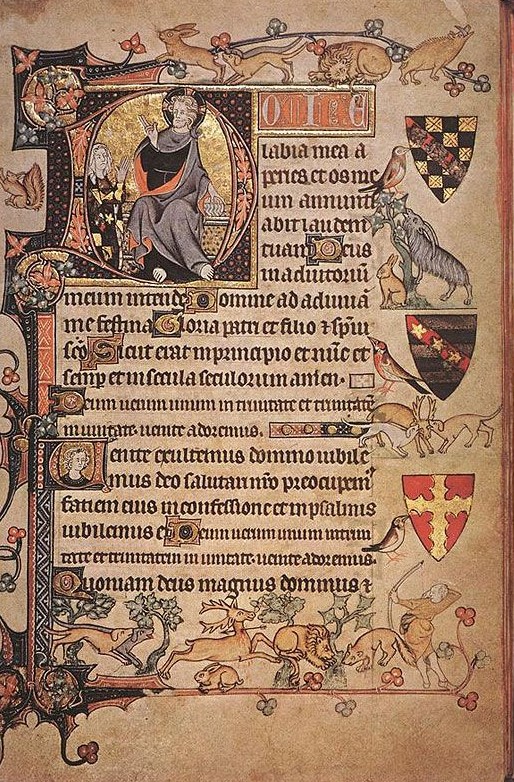 DOMINE
labia mea a
peries et os me
um annunti
abit laudem
tuam Deus
in adiutoriū
meum intende Domine ad adiuuā
me festina Gloria patri et filio ⁊ spūi
scō Sicut erat in principio et nūc et
semp et in secula seculorum amen.
Deum uerum unum in trinitate et trinitatē
in unitate uenite adoremus.
Uenite exultemus domino iubile
mus deo salutari nrō preocupem
faciem eius in confessione et in psalmis
iubilemus ei Deum uerum unum in trini
tate et trinitatem in unitate. uenite adoremus.
Quoniam deus magnus dominus ⁊